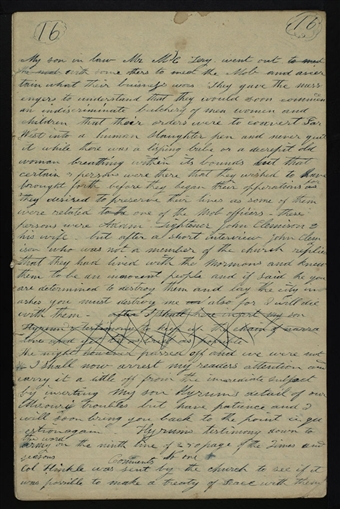 16 16
My son in law Mr. McLeary went out to meet
them with some others to meet the Mob and ascer
tain what their buisness was They gave the mess
engers to understand that they would soon commence
an indiscriminate butchery of men women and
children that their orders were to convert Far
West into a human slaughter pen and never quit
it while there was a lisping babe or a decrepid old
woman breathing within its bounds but that
certain persons were there that they wished to have
brought forth before they began their opperations as
they desired to preserve their lives as some of them
were related to one of the Mob officers these
persons were Adam Lightner John Cleminson &
his wife but after a short interview John Clem
inson who was not a member of the church replied
that they had lived with the Mormons and knew
them to be an innocent people and if said he you
are determined to destroy them and lay the city in
ashes you must destroy me also for I will die
with them
The night however passed off and we were not
I shall now arrest my readers attention and
carry it a little off from the immediate subject
by inserting My son Hyrum's detail of our
Missouri troubles but have patience and I
will soon bring you back to the point in ques
tion again Hyrum's testimony down to
the word on the ninth line of 250 page of the Times and
Seasons
Col Hinkle was sent by the church to see if it
was possible to make a treaty of peace with them